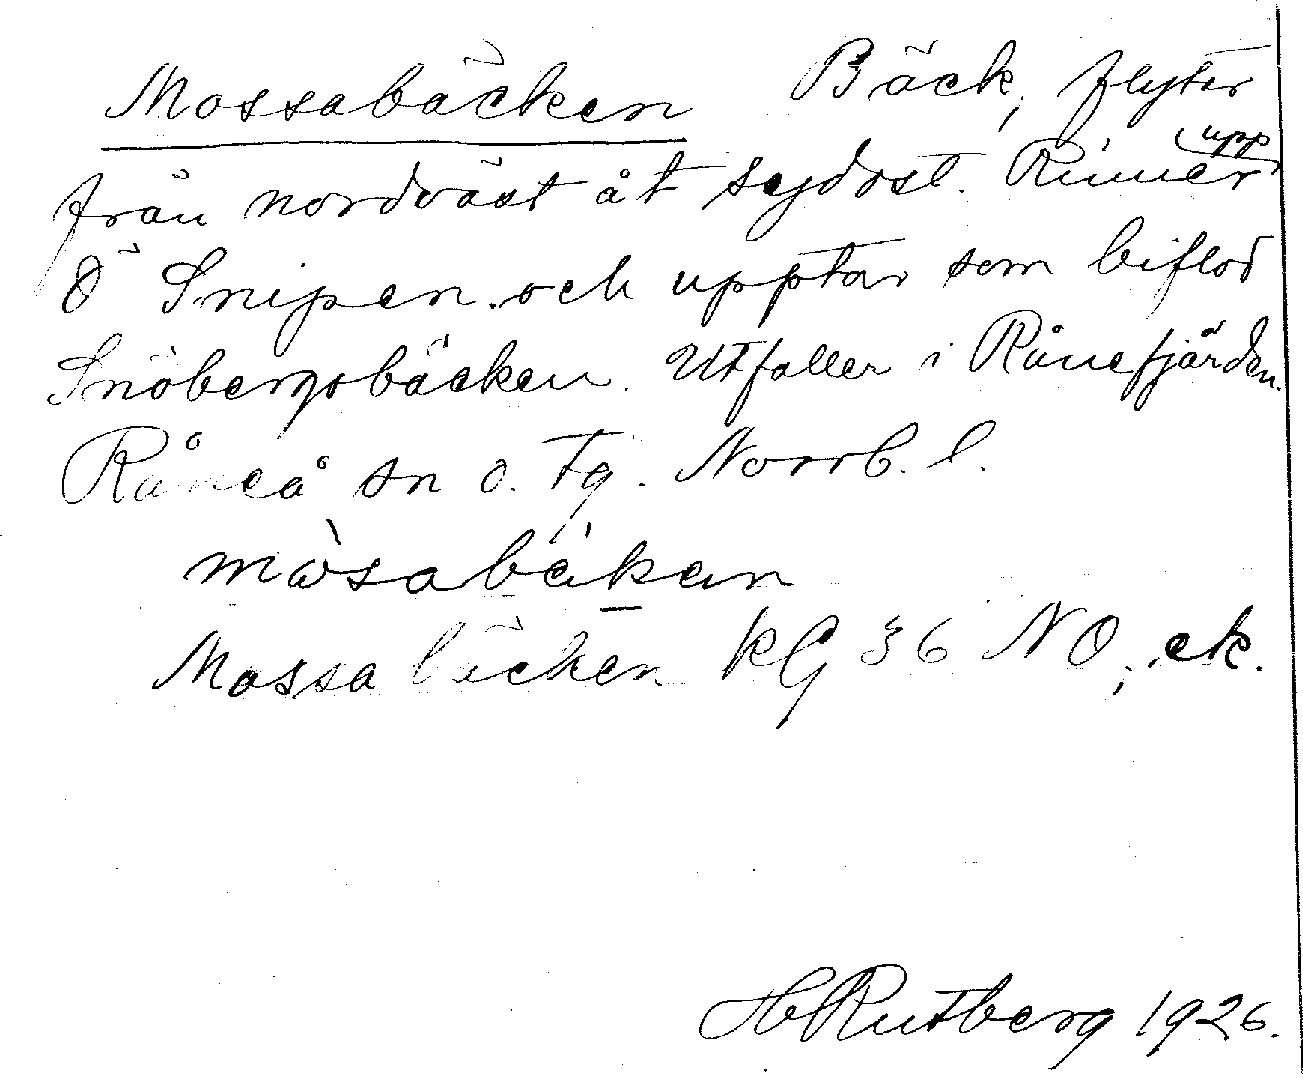 Mossabäcken Bäck, flyter
från nordväst åt sydost. Rinner upp
Ö Snipen och upptar som biflod
Snöbergsbäcken. Utfaller i Rånefjärden.
Råneå sn o. tg. Norrb. l.
Mossabäcken KG 36 NO, ek.
H Rutberg 1926.